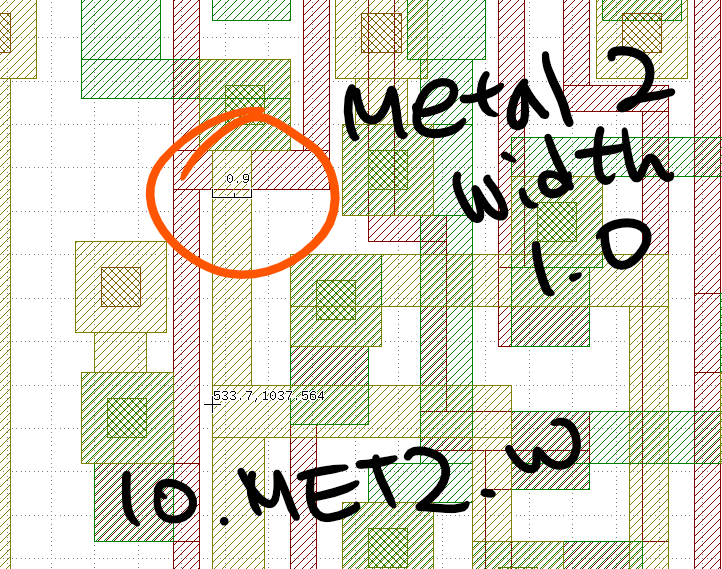 Metal 2
width
1.0
0.9
533.7,1037.564
10.MET2.W